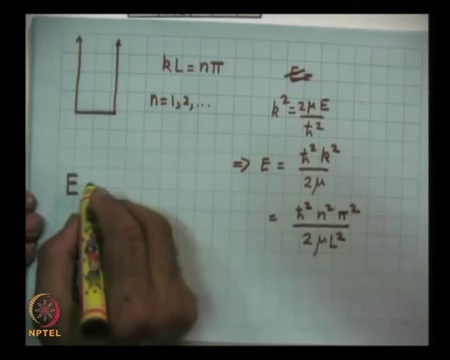 kL = nπ
n = 1, 2, ...
k² = 2μE / ħ²
⇒ E = ħ²k² / 2μ
= ħ²n²π² / 2μL²
E
NPTEL